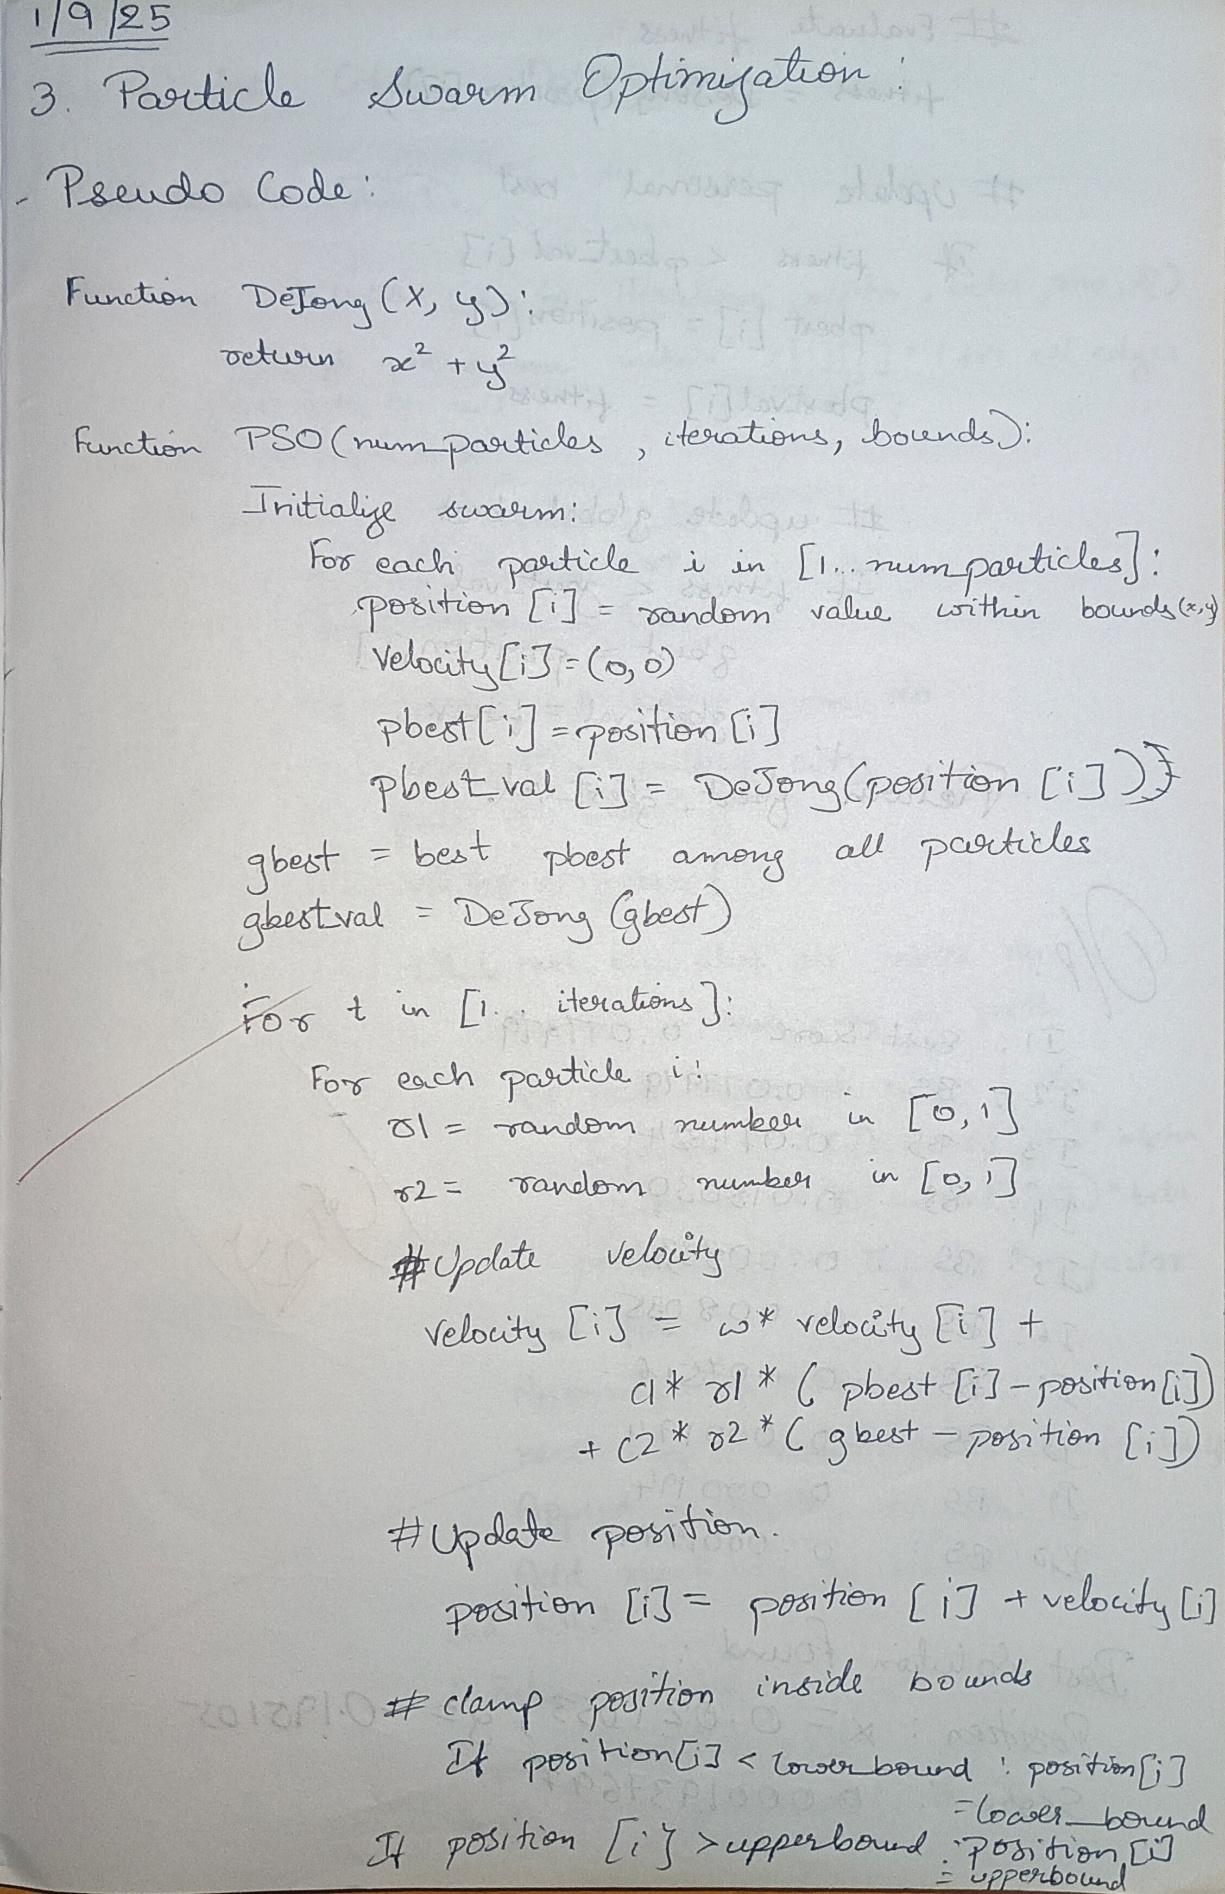 1/9/25
3. Particle Swarm Optimization:
- Pseudo Code:
Function DeJong (X, y):
return x² + y²
Function PSO (num_particles, iterations, bounds):
Initialize swarm:
For each particle i in [1... num_particles]:
position [i] = random value within bounds (x,y)
Velocity [i] = (0, 0)
pbest [i] = position [i]
pbest_val [i] = DeJong (position [i])
gbest = best pbest among all particles
gbest_val = DeJong (gbest)
For t in [1... iterations]:
For each particle i:
r1 = random number in [0, 1]
r2 = random number in [0, 1]
# Update velocity
velocity [i] = w * velocity [i] +
c1 * r1 * ( pbest [i] - position [i])
+ C2 * r2 * ( gbest - position [i])
# Update position.
position [i] = position [i] + velocity [i]
# clamp position inside bounds
If position [i] < lower_bound : position [i]
= lower_bound
If position [i] > upperbound : position [i]
= upperbound